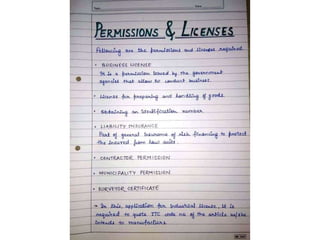 PERMISSIONS & LICENSES
Following are the permissions and licenses required
• BUSINESS LICENCE
It is a permission issued by the government
agencies that allow to conduct business.
• License for preparing and handling of goods.
• Obtaining an identification number
• LIABILITY INSURANCE
Part of general Insurance of risk financing to protect
the insured from law suits.
• CONTRACTOR PERMISSION
• MUNICIPALITY PERMISSION
• SURVEYOR CERTIFICATE
→ In this, application for industrial license, it is
required to quote ITC code no of the article he/she
intends to manufacture